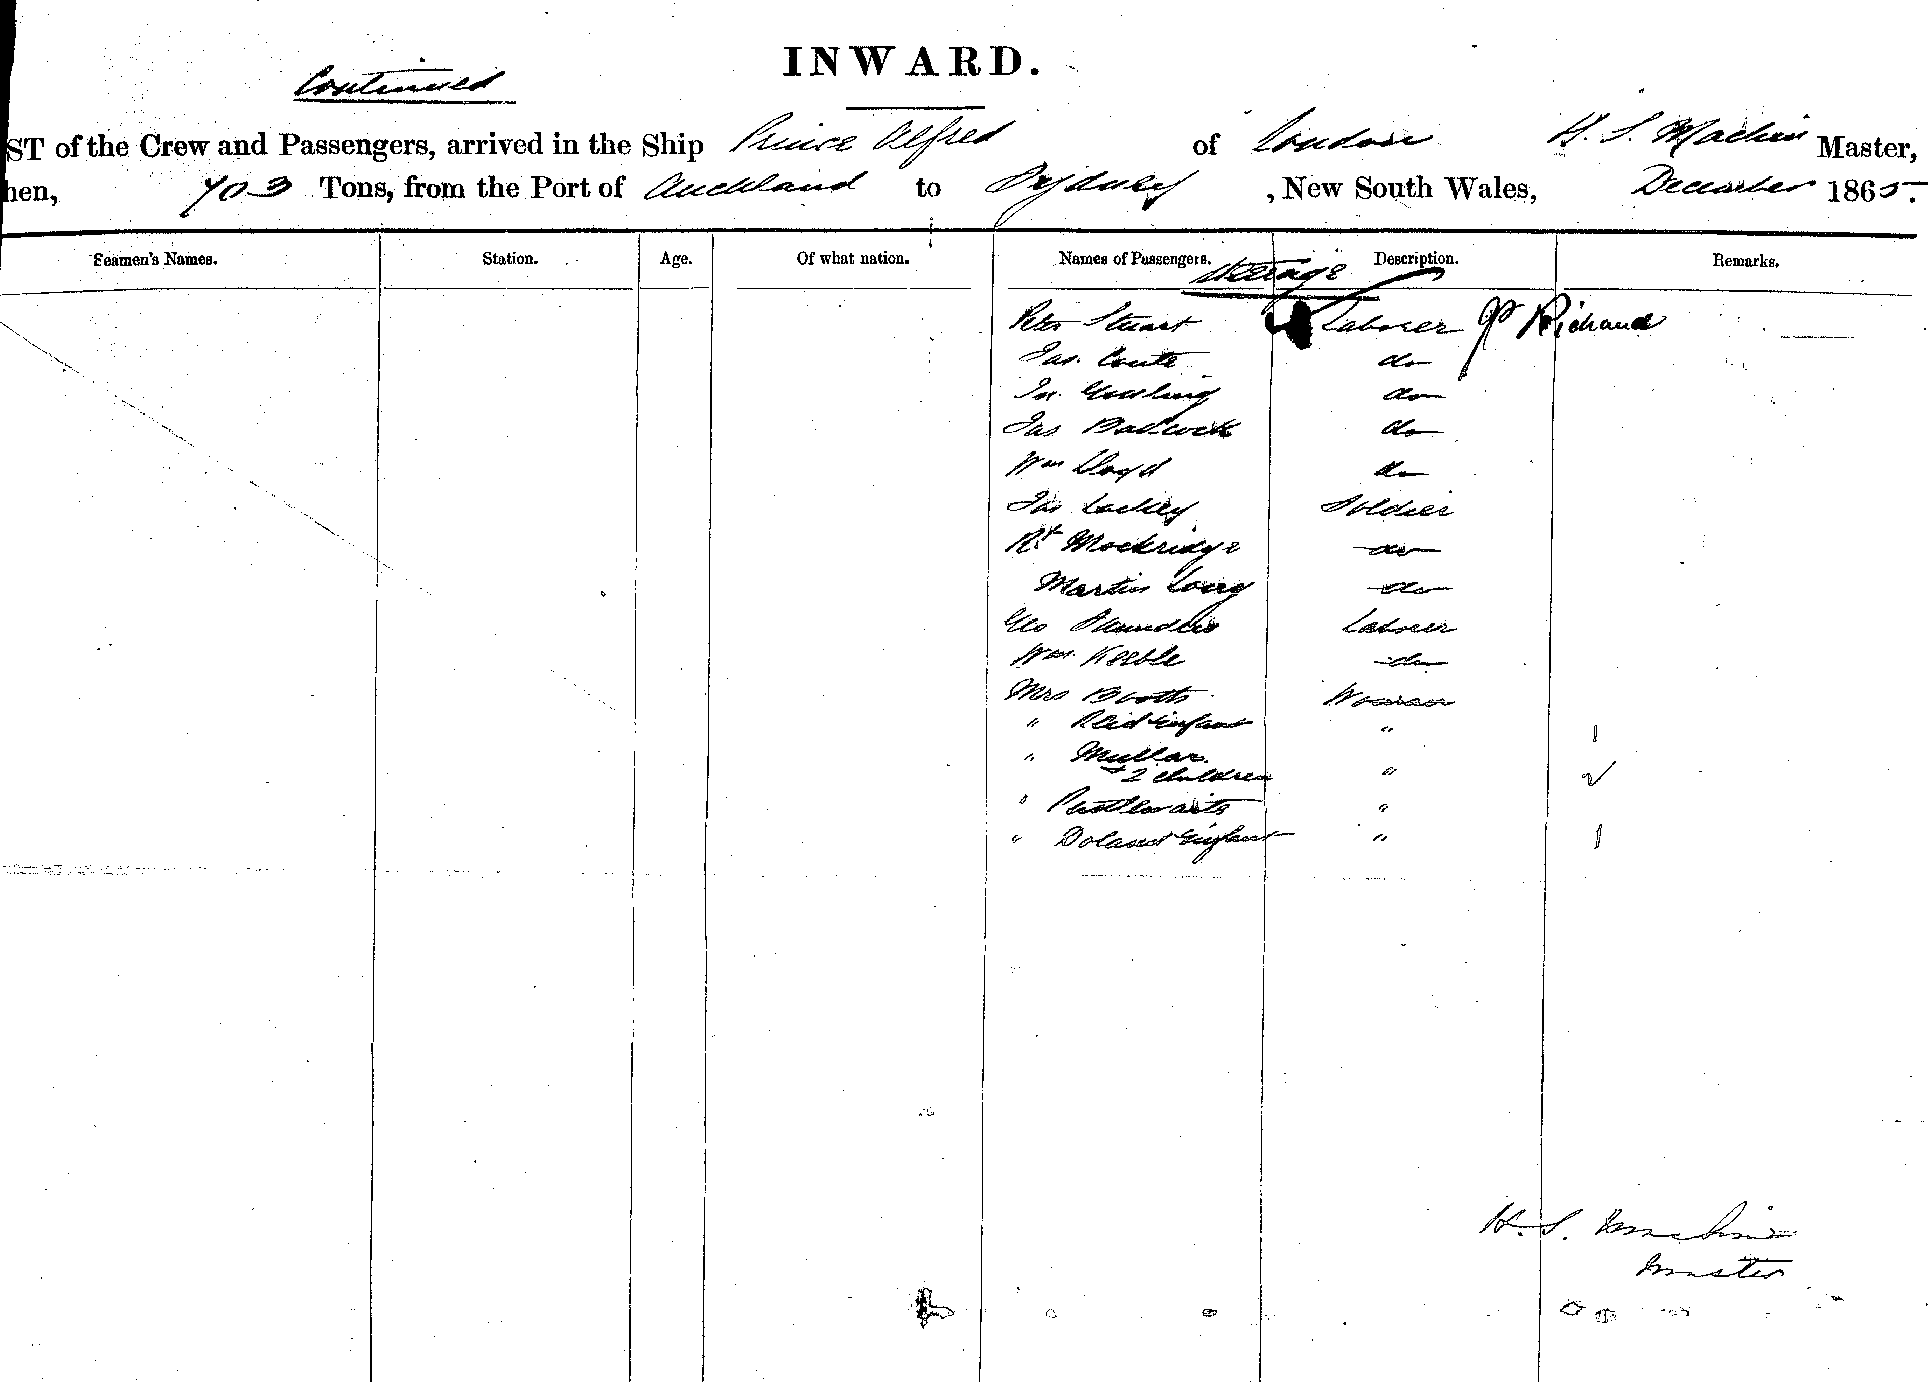 INWARD.
Continued
ST of the Crew and Passengers, arrived in the Ship Prince Alfred of London H. S. Machin Master,
hen, 703 Tons, from the Port of Auckland to Sydney, New South Wales, December 1865.
Seamen's Names. Station. Age. Of what nation. Names of Passengers. Description. Remarks.
Steerage
Peter Stuart Laborer Richand
Jas. Coute do
Jn. Gosling do
Jas do
Wm Lloyd do
Jas Lackey Soldier
Rt Mockridge do
Martin Long do
Geo Saunders Laborer
Wm. Keeble do
Mrs Booth Woman
" Reid & infant " 1
" Mullar
+ 2 children " 2
" Postlewaite "
" Doland & infant " 1
H. S. Machin
Master